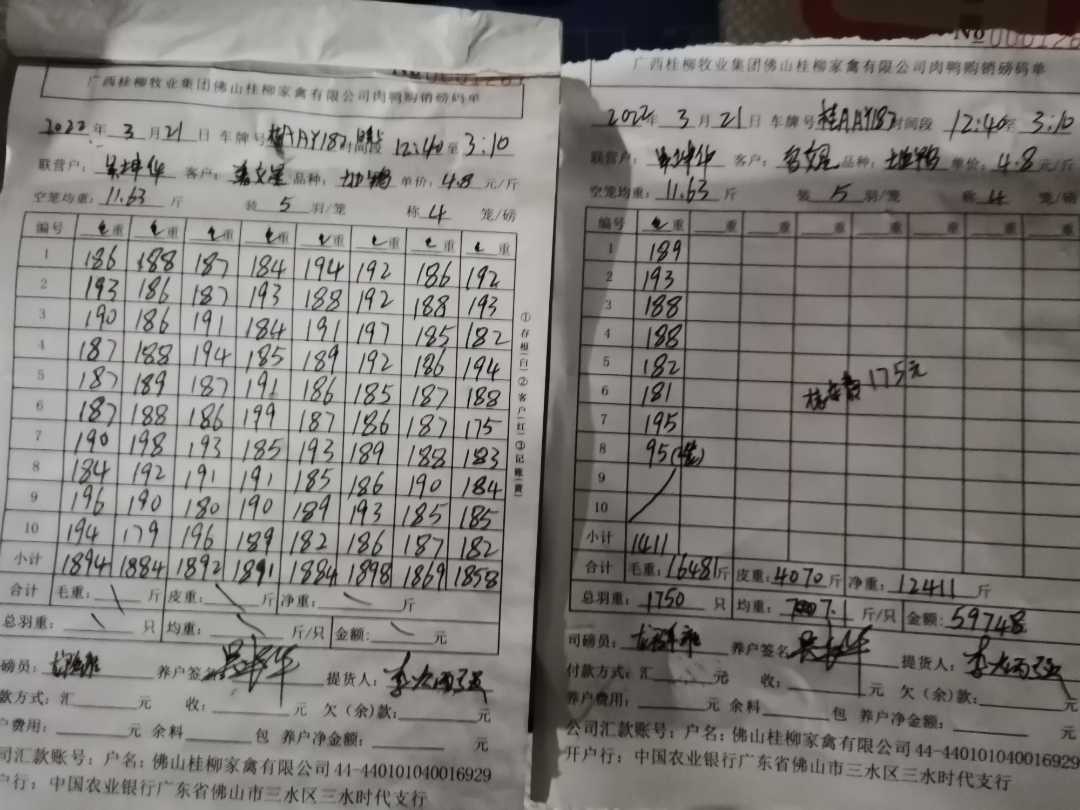 广西桂柳牧业集团佛山桂柳家禽有限公司肉鸭购销磅码单
2022年 3月21日 车牌号桂AAY187 时间段 12:40至3:10
联营户： 客户： 品种：土鸭 单价：4.8元/斤
空笼均重：11.63斤 装 5 羽/笼 称 4 笼/磅
编号 毛重 毛重 毛重 毛重 毛重 毛重 毛重 毛重
1 186 188 187 184 194 192 186 192
2 193 186 187 193 188 192 188 193
3 190 186 191 184 191 197 185 182
4 187 188 194 185 189 192 186 194
5 187 189 187 191 186 185 187 188
6 187 188 186 199 187 186 187 175
7 190 198 193 185 193 189 188 183
8 184 192 191 191 185 186 190 184
9 196 190 180 190 189 193 185 185
10 194 179 196 189 182 186 187 182
小计 1894 1884 1892 1891 1884 1898 1869 1858
合计 毛重： 斤 皮重： 斤 净重： 斤
总羽重： 只 均重： 斤/只 金额： 元
磅员： 养户签名 提货人：
款方式：汇 元 收： 元 欠（余）款： 元
户费用： 元 余料 包 养户净金额： 元
司汇款账号：户名：佛山桂柳家禽有限公司44-440101040016929
户行：中国农业银行广东省佛山市三水区三水时代支行
①存根（白）②客户（红）③记账（黄）
广西桂柳牧业集团佛山桂柳家禽有限公司肉鸭购销磅码单
2022年 3月21日 车牌号桂AAY187时间段 12:40至 3:10
联营户： 客户： 品种：土鸭 单价：4.8元/斤
空笼均重：11.63斤 装 5 羽/笼 称 4 笼/磅
编号 毛重 重 重 重 重 重 重 重
1 189
2 193
3 188
4 188
5 182
6 181
7 195
8 95
9
10
175元
小计 1411
合计 毛重：16481斤 皮重：4070斤 净重：12411斤
总羽重：1750只 均重：7.1斤/只 金额：59748
司磅员： 养户签名 提货人：
付款方式：汇 元 收： 元 欠（余）款： 元
养户费用： 元 余料 包 养户净金额： 元
公司汇款账号：户名：佛山桂柳家禽有限公司44-440101040016929
开户行：中国农业银行广东省佛山市三水区三水时代支行